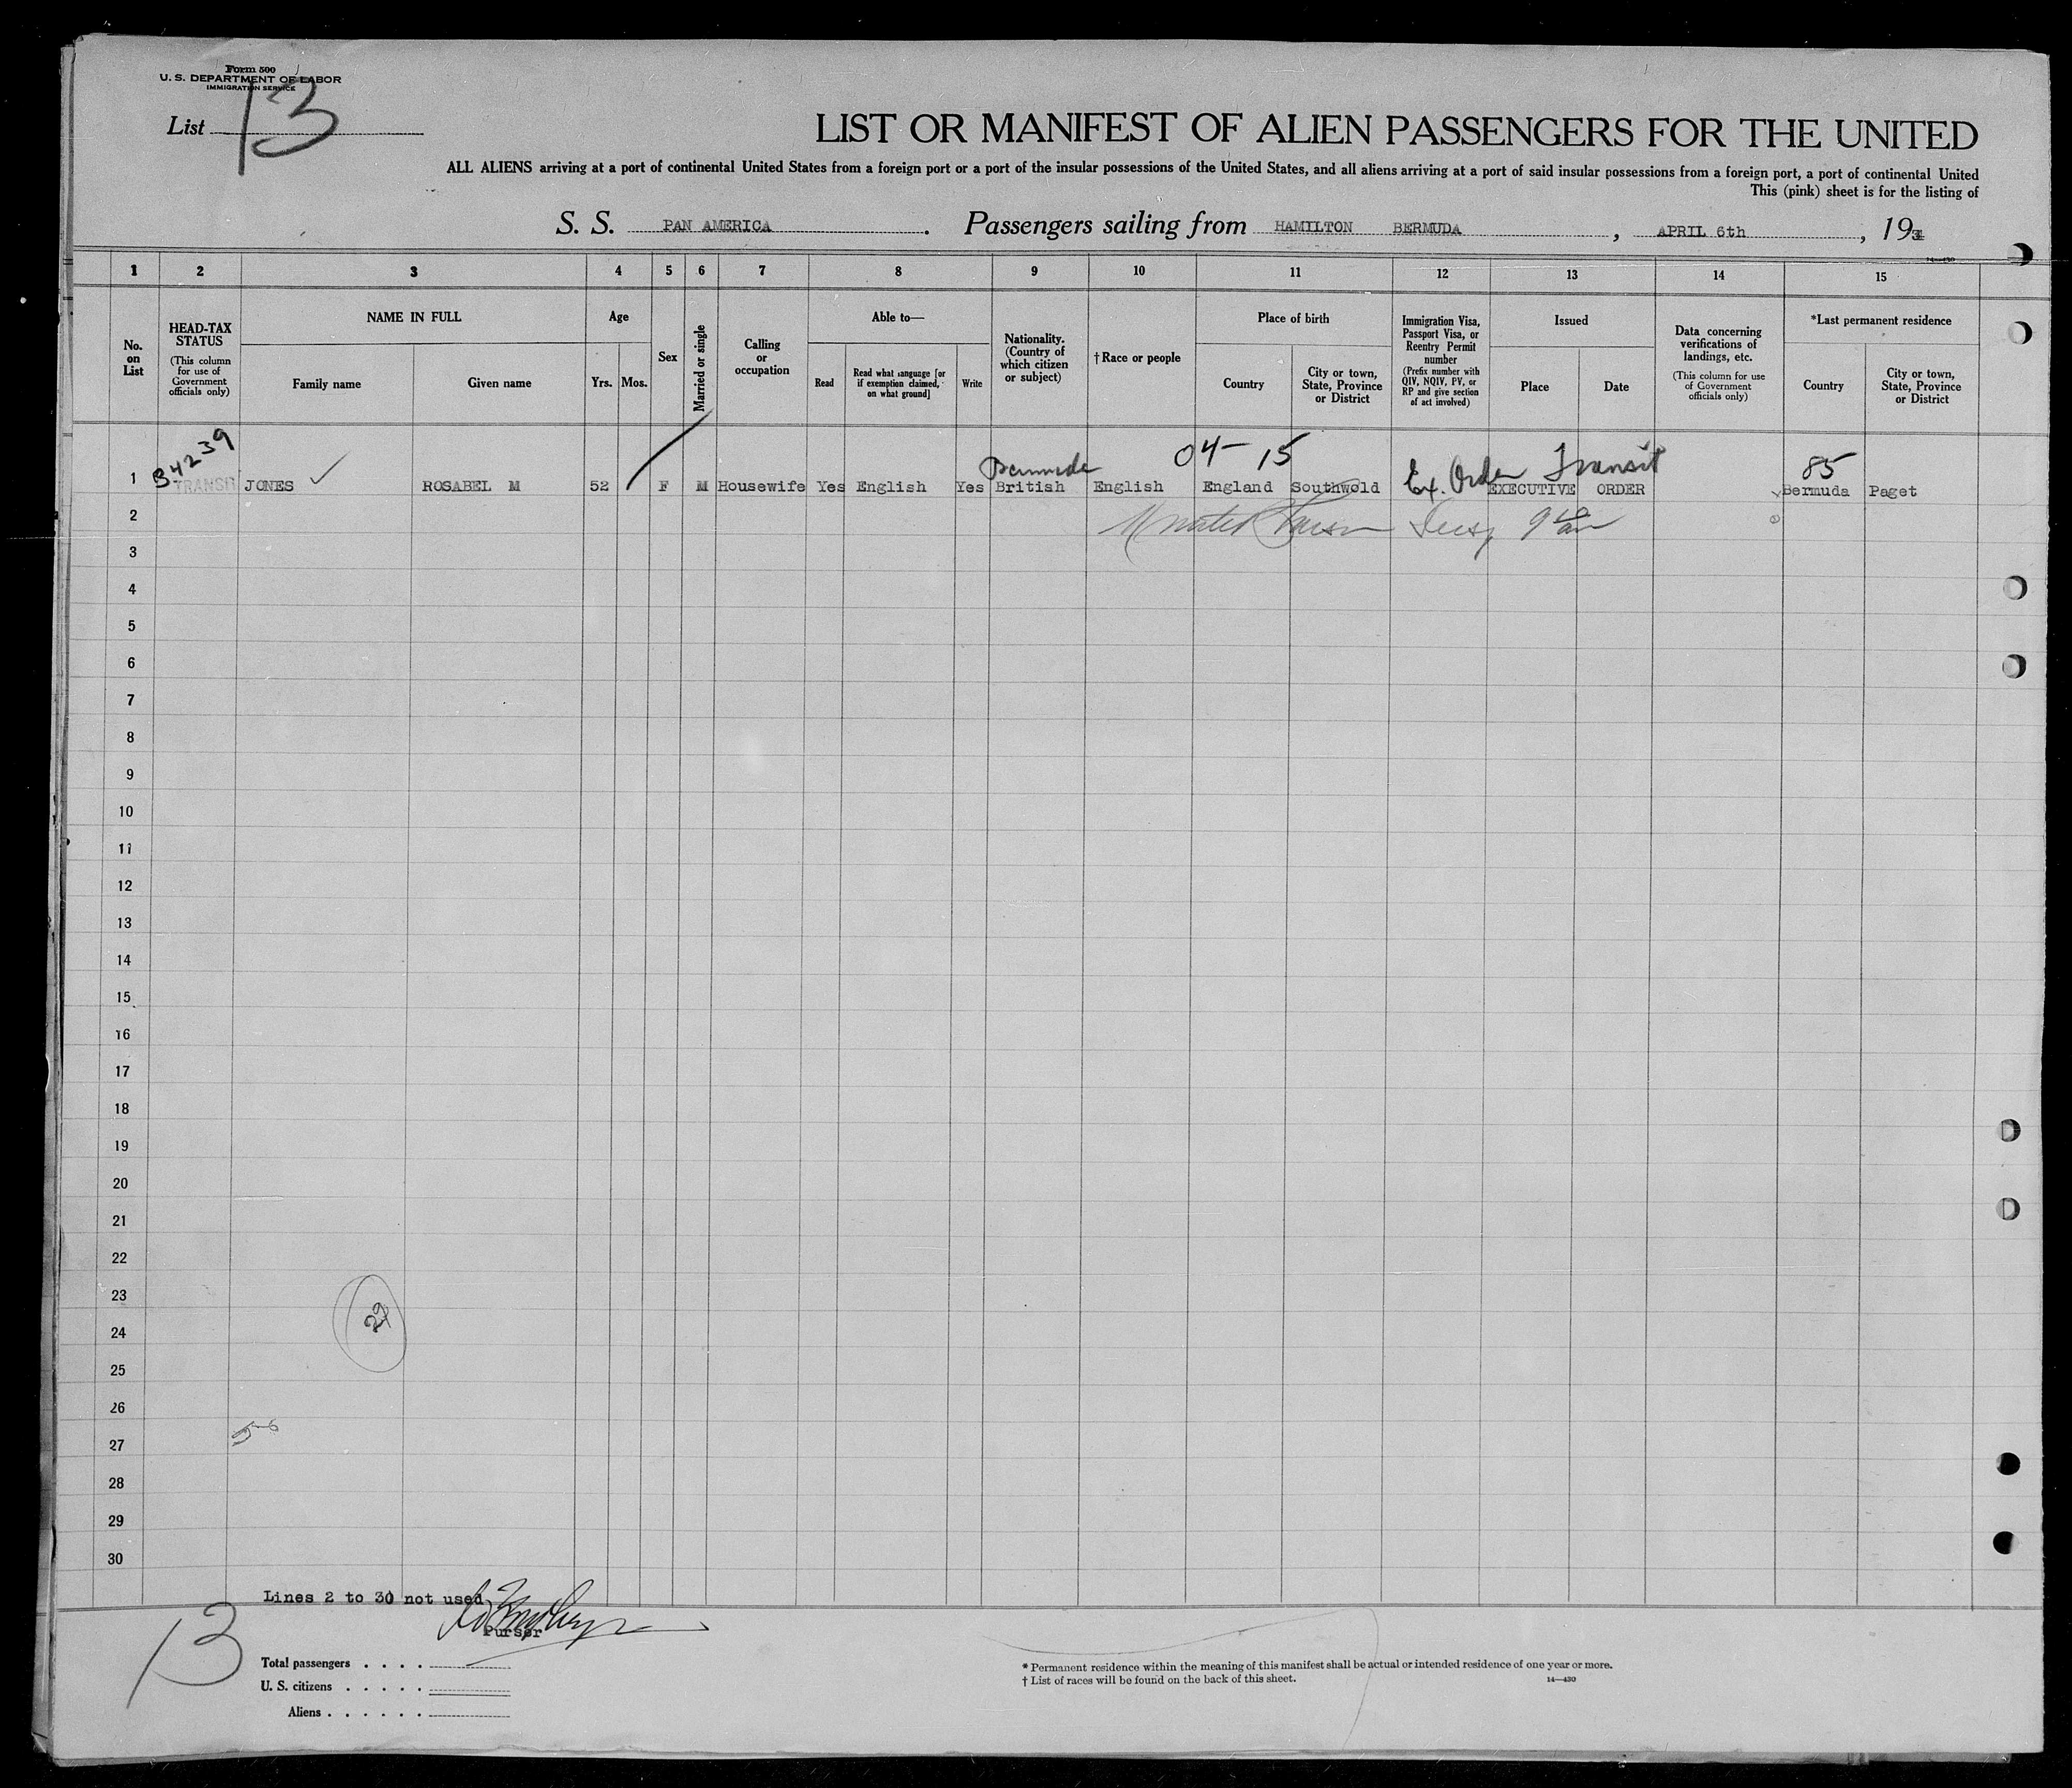 Form 500
U. S. DEPARTMENT OF LABOR
IMMIGRATION SERVICE
List 13
LIST OR MANIFEST OF ALIEN PASSENGERS FOR THE UNITED
ALL ALIENS arriving at a port of continental United States from a foreign port or a port of the insular possessions of the United States, and all aliens arriving at a port of said insular possessions from a foreign port, a port of continental United
This (pink) sheet is for the listing of
S. S. PAN AMERICA. Passengers sailing from HAMILTON BERMUDA, APRIL 6th, 193
14—430
1 2 3 4 5 6 7 8 9 10 11 12 13 14 15
No. on List
HEAD-TAX STATUS
(This column for use of Government officials only)
NAME IN FULL
Family name
Given name
Age
Yrs.
Mos.
Sex
Married or single
Calling or occupation
Able to—
Read
Read what language [or if exemption claimed, on what ground]
Write
Nationality. (Country of which citizen or subject)
†Race or people
Place of birth
Country
City or town, State, Province or District
Immigration Visa, Passport Visa, or Reentry Permit number
(Prefix number with QIV, NQIV, PV, or RP and give section of act involved)
Issued
Place
Date
Data concerning verifications of landings, etc.
(This column for use of Government officials only)
*Last permanent residence
Country
City or town, State, Province or District
34239
Bermuda 04-15 Ex. Order Transit 85
1 TRANSIT JONES ✓ ROSABEL M 52 F M Housewife Yes English Yes British English England Southwold EXECUTIVE ORDER Bermuda Paget
2
3
4
5
6
7
8
9
10
11
12
13
14
15
16
17
18
19
20
21
22
23
29
24
25
26
27
28
29
30
Lines 2 to 30 not used
Purser
13
Total passengers . . . .
U. S. citizens . . . . .
Aliens . . . . . .
* Permanent residence within the meaning of this manifest shall be actual or intended residence of one year or more.
† List of races will be found on the back of this sheet.
14—430